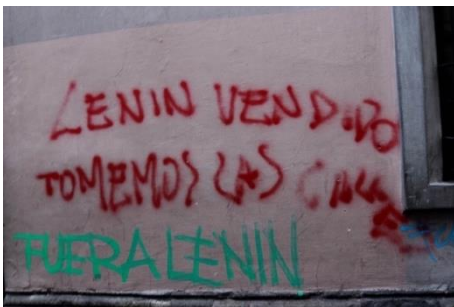 LENIN VENDIDO
TOMEMOS LAS CALLES
FUERA LENIN